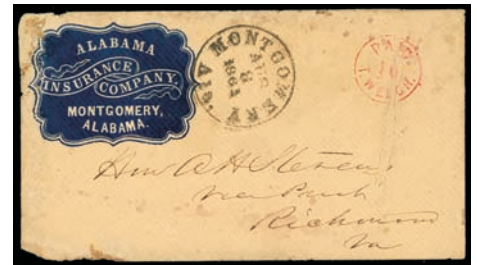 ALABAMA
INSURANCE
COMPANY,
MONTGOMERY,
ALABAMA.
MONTGOMERY Ala.
AUG
8
1861
PAID
10
Hon A H Stevens
Vice Prest
Richmond
Va